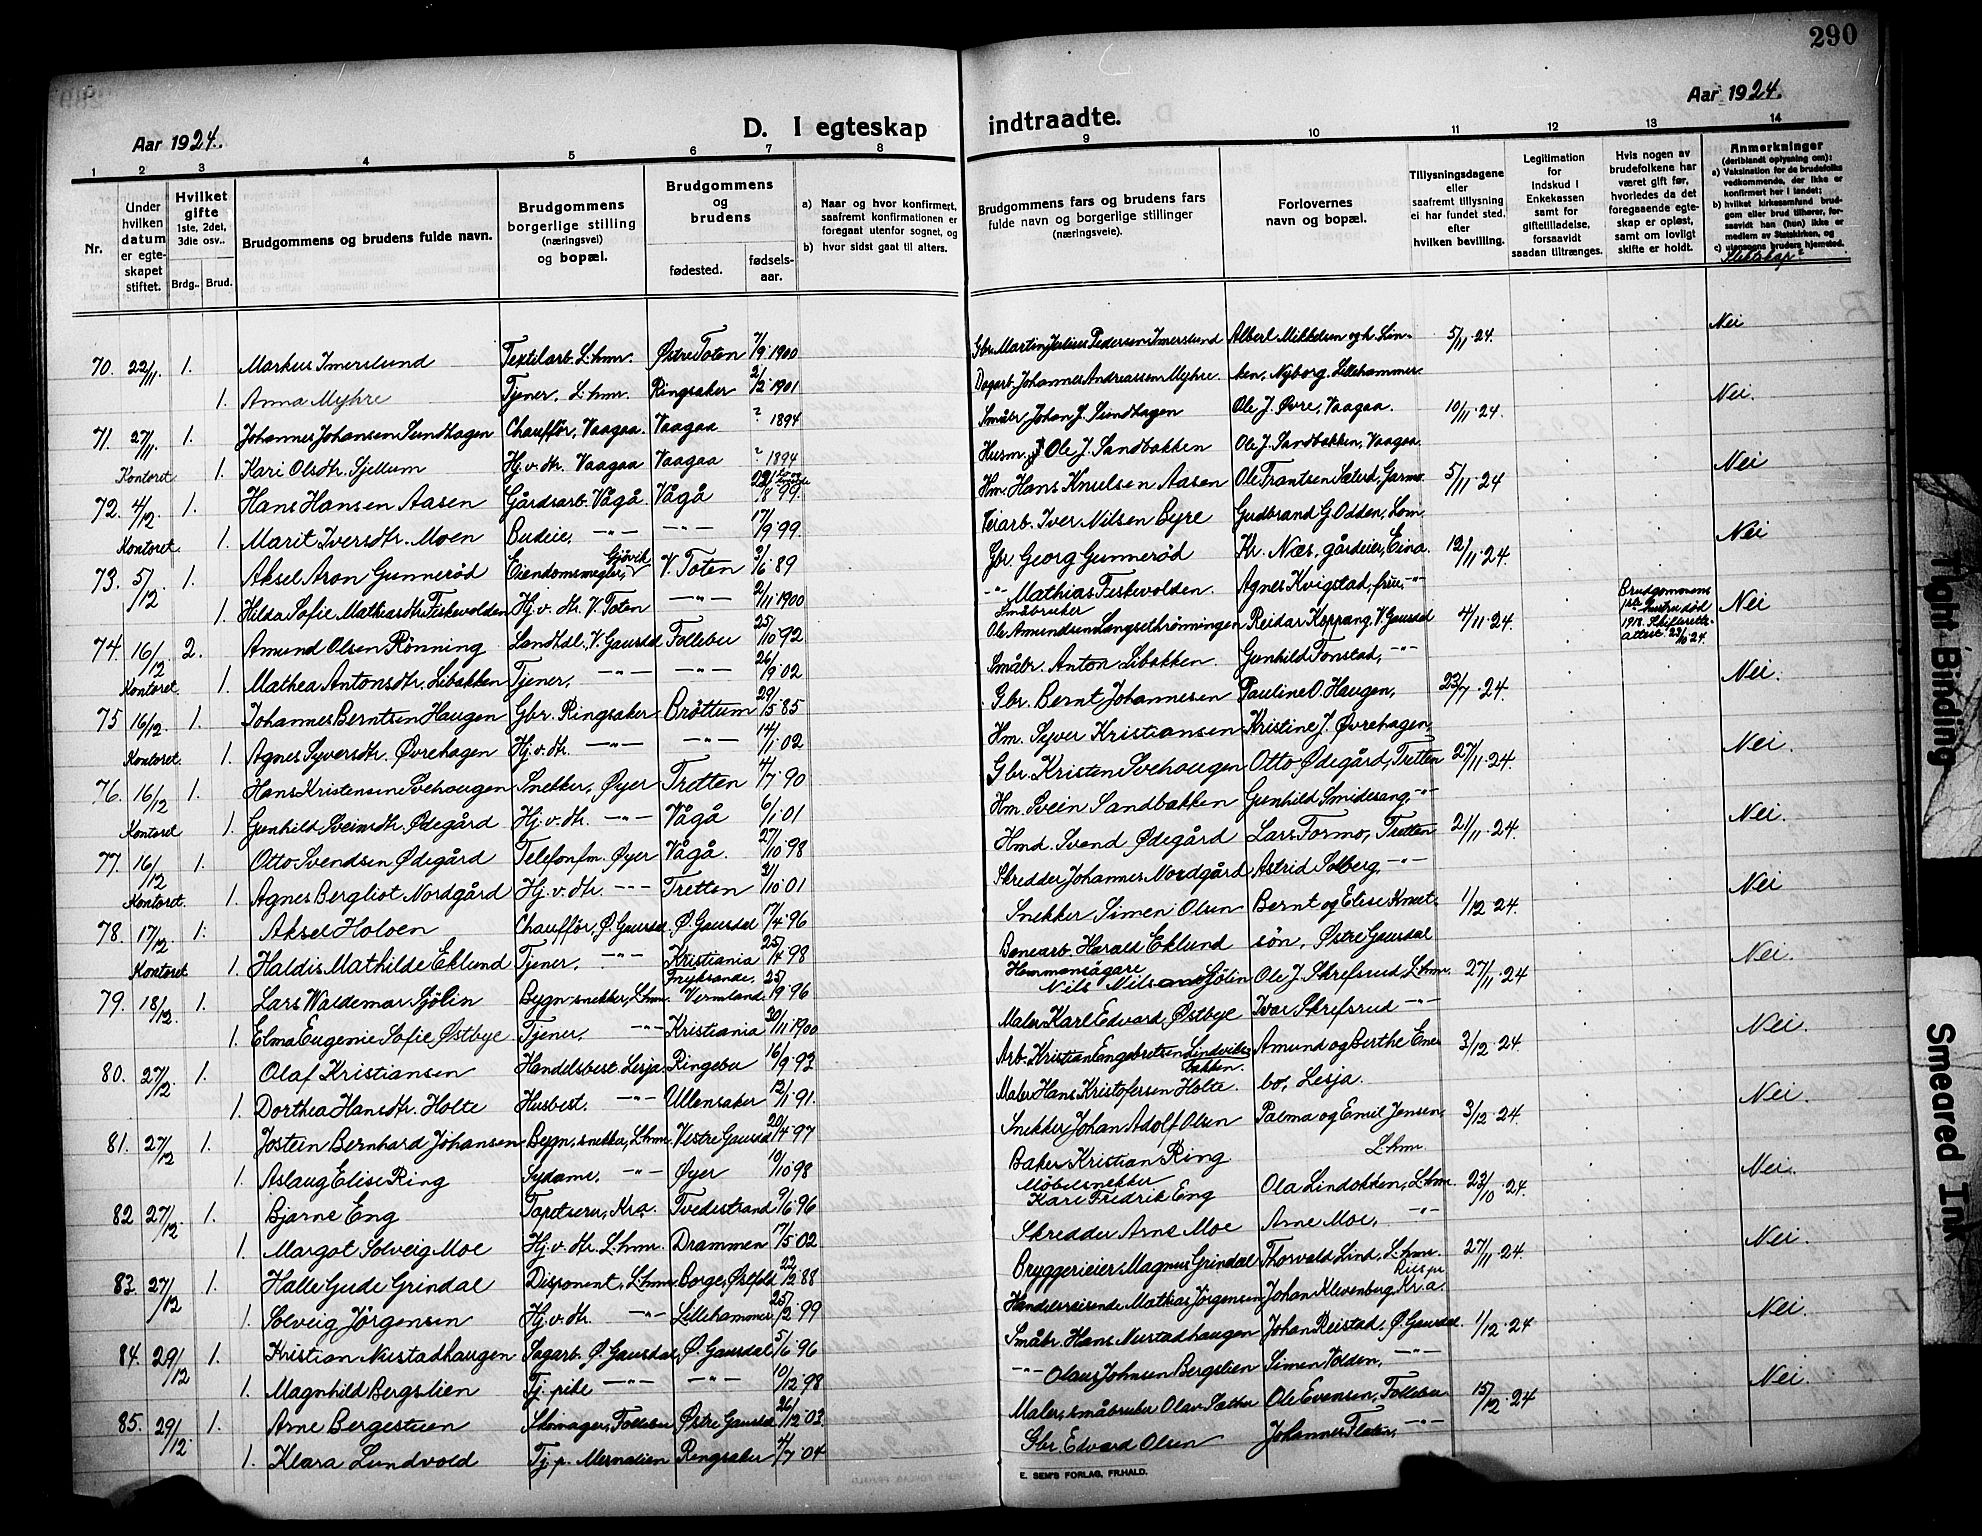 290
Aar 1924.
Aar 1924.
D. I egteskap indtraadte.
1 2 3 4 5 6 7 8 9 10 11 12 13 14
Nr.
Under hvilken datum er egteskapet stiftet.
Hvilket gifte 1ste, 2det, 3die osv.
Brdg. Brud.
Brudgommens og brudens fulde navn.
Brudgommens borgerlige stilling (næringsvei) og bopæl.
Brudgommens og brudens
fødested.
fødselsaar.
a) Naar og hvor konfirmert, saafremt konfirmationen er foregaat utenfor sognet, og
b) hvor sidst gaat til alters.
Brudgommens fars og brudens fars fulde navn og borgerlige stillinger (næringsveie).
Forlovernes navn og bopæl.
Tillysningsdagene eller saafremt tillysning ei har fundet sted, efter hvilken bevilling.
Legitimation for Indskud i Enkekassen samt for giftetilladelse, forsaavidt saadan tiltrænges.
Hvis nogen av brudefolkene har været gift før, hvorledes da det foregaaende egteskap er opløst, samt om lovligt skifte er holdt.
Anmerkninger (deriblandt oplysning om):
a) Vaksination for de brudefolks vedkommende, der ikke er konfirmert her i landet;
b) hvilket kirkesamfund brudgom eller brud tilhører, forsaavidt han (hun) ikke er medlem av Statskirken, og
c) utenbygds bruders hjemsted.
Slektskap?
70. 22/11. 1. Markus Imerslund Textilarb. L.hmr. Østre Toten 7/9 1900 Gbr. Martin Julius Pedersen Imerslund Albert Mikkelsen og h. Lin- 5/11 24. Nei
1. Anna Myhre Tjener, L.hmr. Ringsaker 2/2 1901 Dagarb. Johannes Andreassen Myhre. ken, Nyborg. Lillehammer
71. 27/11 1. Johannes Johansen Sundhagen Chauffør, Vaagaa. Vaagaa " 1894 Småbr. Johan J. Sundhagen Ole J. Øvre, Vaagaa. 10/11 24. Nei.
Kontoret 1. Kari Olsdtr. Sjellum Hj.v.dtr. Vaagaa Vaagaa " 1894 Husm. Ole J. Sandbakken Ole J. Sandbakken, Vaagaa
72. 4/12. 1. Hans Hansen Aasen Gårdsarb. Vågå. Vågå 8 99. Hm. Hans Knutsen Aasen Ole Frantsen Sæterd, Garmo. 5/11 24 Nei
Kontoret. 1. Marit Iversdtr. Moen Budeie, —"— —"— 17/9 99. Veiarb. Iver Nilsen Byre Gudbrand G. Odden, Lom.
73. 5/12 1. Aksel Aron Gunnerød Eiendomsmegler, Gjøvik V. Toten 3/6 89 Gbr. Georg Gunnerød Kr. Næs, gårdeier, Eina. 12/11 24. Nei
1. Hilda Sofie Mathiasdtr. Fiskevolden Hj.v.dtr. V. Toten —"— 2/11 1900 —"— Mathias Fiskevolden Agnes Kvigstad, frue, —"—
74. 16/12 2. Amund Olsen Rønning Landhdl., V. Gausdal Follebu 25/10 92 Småbruker Ole Amundsen Langsethrønningen Reidar Koppang, V. Gausdal 4/11 24. Brudgommens 1ste hustru død 1918. Skifteretts-attest 23/10 24. Nei
Kontoret. 1. Mathea Antonsdtr. Libakken Tjener, —"— —"— 26/9 02 Småbr. Anton Libakken Gunhild Fonstad, —"—
75 16/12. 1. Johannes Berntsen Haugen Gbr. Ringsaker Brøttum 29/5 85 Gbr. Bernt Johannesen Pauline O. Haugen, 23/7 24. Nei.
Kontoret. 1. Agnes Syversdtr. Øvrehagen Hj.v.dtr. —"— —"— 14/1 02 Hm. Syver Kristiansen Kristine J. Øvrehagen,
76. 16/12 1. Hans Kristensen Svehaugen Snekker, Øyer Tretten 4/7 90 Gbr. Kristen Svehaugen Otto Ødegård, Tretten 27/11 24. Nei.
Kontoret 1. Gunhild Sveinsdtr. Ødegård Hj.v.dtr. —"— Vågå 6/1 01 Hm. Svein Sandbakken Gunhild Smidesang, —"—
77. 16/12 1. Otto Svendsen Ødegård Telefonfm. Øyer Vågå. 27/10 98 Hmd. Svend Ødegård Lars Formo, Tretten 21/11 24. Nei.
Kontoret. 1. Agnes Bergliot Nordgård Hj.v.dtr. —"— Tretten 3/10 01 Skredder Johannes Nordgård Astrid Solberg, —"—
78. 17/12. 1. Aksel Holoen Chauffør, Ø. Gausdal Ø. Gausdal 17/4 96 Snekker Simen Olsen Bernt og Elise Knut- 1/12 24. Nei
Kontoret. 1. Haldis Mathilde Eklund Tjener, —"— Kristiania 25/4 98 Banearb. Harald Eklund søn, Østre Gausdal
79. 18/12. 1. Lars Waldemar Sjølin Bygn.snekker, L.hmr. Fryksande, Vermland 25/9 96 Hemmansägare Nils Nilsson Sjölin Ole J. Skrefsrud L.hmr. 27/11 24 Nei.
1. Elma Eugenie Sofie Østbye Tjener, —"— Kristiania 20/11 1900 Maler Karl Edvard Østbye Ivar Skrefsrud —"—
80. 27/12. 1. Olaf Kristiansen Handelsbest. Lesja. Ringebu 16/9 93 Arb. Kristian Engebretsen Lindviksbakken. Amund og Berthe Ene- 3/12 24. Nei.
1. Dorthea Hansdtr. Holte Husbest. —"— Ullensaker 12/1 91. Maler Hans Kristofersen Holte. bo, Lesja.
81. 27/12 1. Jostein Bernhard Johansen Bygn.snekker, L.hmr. Vestre Gausdal 20/4 97 Snekker Johan Adolf Olsen Palma og Emil Jensen, 3/12 24. Nei.
1. Aslaug Elise Ring Sydame, —"— Øyer 10/10 98 Baker Kristian Ring L.hmr.
82 27/12 1. Bjarne Eng Tapetserer, Kr.a. Tvedestrand 9/6 96 Møbelsnekker Karl Fredrik Eng Ola Lindokken, L.hmr. 23/10 24. Nei.
1. Margot Solveig Moe Hj.v.dtr. L.hmr. Drammen 17/5 02 Skredder Arne Moe Arne Moe, —"—
83. 27/12 1. Halle Gude Grindal Disponent, L.hmr. Borge, Østfold 22/2 88 Bryggerieier Magnus Grindal Thorvald Lind, L.hmr. 27/11 24. Nei.
1. Solveig Jørgensen Hj.v.dtr. —"— Lillehammer 25/2 99 Handelsreisende Mathias Jørgensen Johan Klevenberg Kr.a.
84. 29/12 1. Kristian Nustadhaugen Sagarb. Ø. Gausdal, Ø. Gausdal 5/6 96 Småbr. Hans Nustadhaugen Johan Reistad, Ø. Gausdal 1/12 24 Nei.
1. Magnhild Bergslien Tj.pike —"— —"— 10/12 98 —"— Olaus Johnsen Bergslien Simen Volden, —"—
85. 29/12 1. Arne Bergestuen Skomager, Follebu Østre Gausdal 26/12 03. Maler, småbruker Olav Sæther Ole Evensen, Follebu 15/12 24 Nei.
1. Klara Lundvold Tj.p. Mesnalien Ringsaker 4/7 04 Gbr. Edvard Olsen Johannes Flaten, —"—
E. SEM'S FORLAG, FR.HALD.
Tight Binding
Smeared Ink